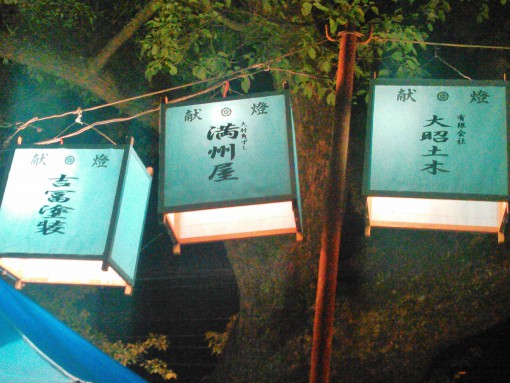 献燈
吉冨塗装
献燈
大村角ずし
満州屋
献燈
有限会社
大昭土木